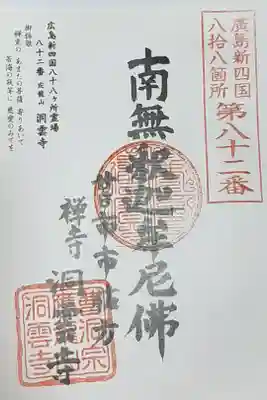 廣島新四国
八拾八箇所
第八十二番
南無釈迦牟尼佛
廿日市市佐方
禅寺 洞雲寺
広島新四国八十八ヶ所霊場
八十二番 応龍山 洞雲寺
御詠歌
禅東の あまたの菩薩 寄りあいて
苦海の我等に 慈愛のみてを
曹洞宗
洞雲寺